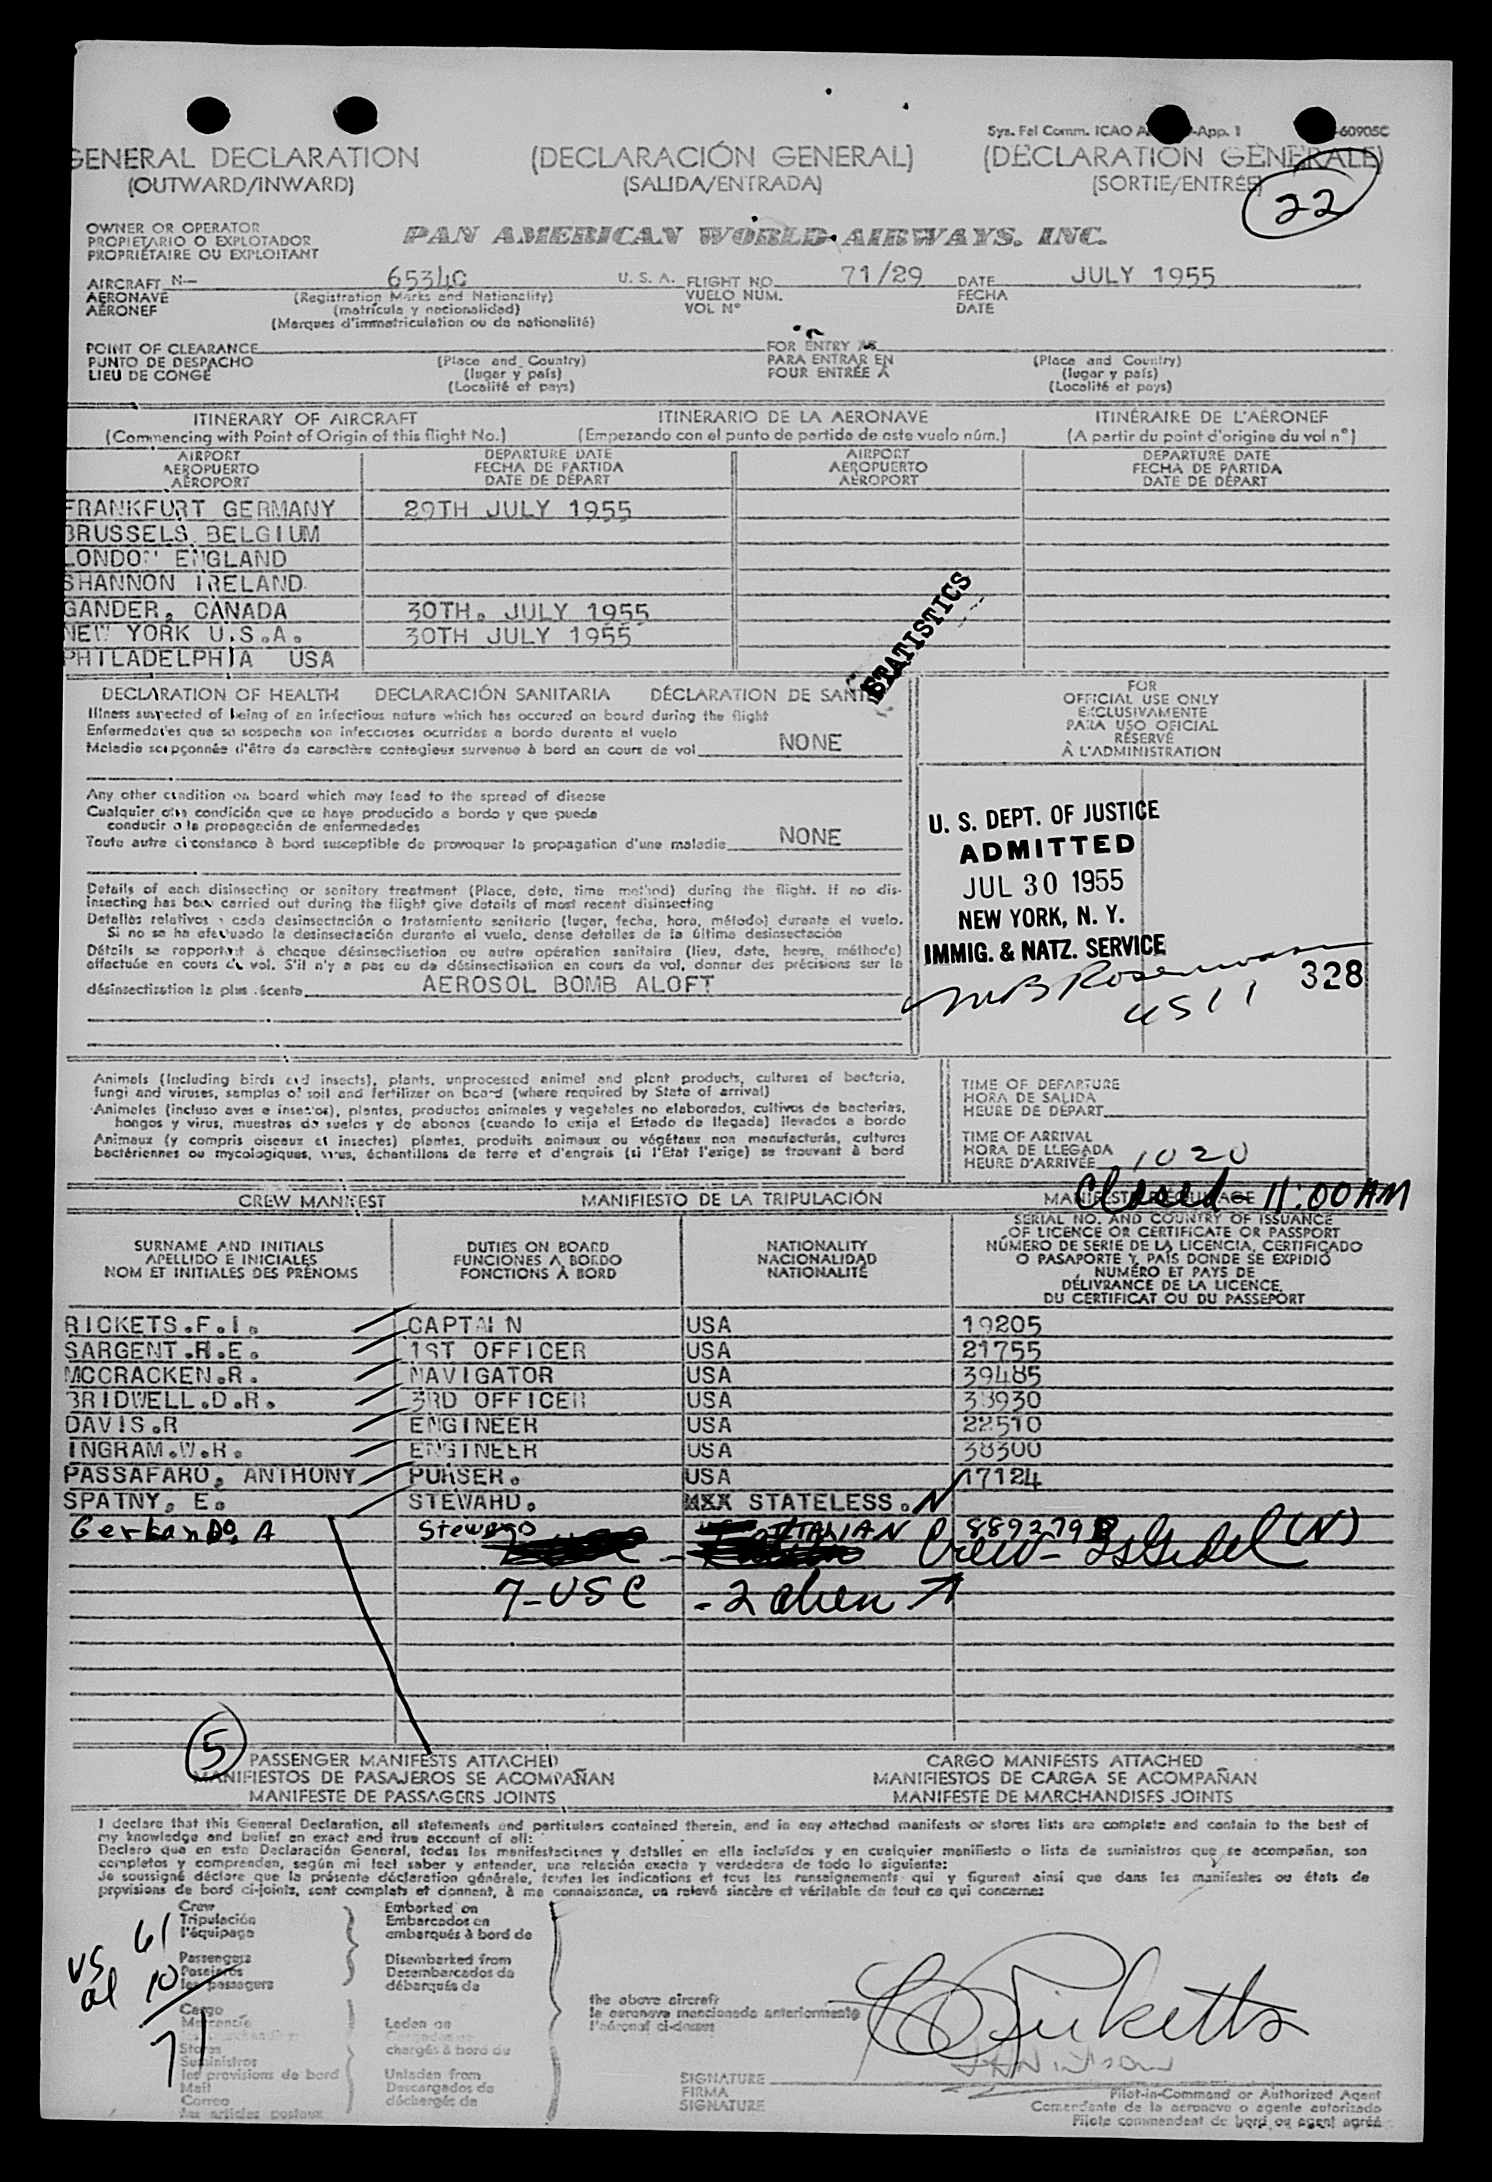 Sys. Fal Comm. ICAO -App. 1 -60905C
GENERAL DECLARATION (DECLARACIÓN GENERAL) (DÉCLARATION GÉNÉRALE)
(OUTWARD/INWARD) (SALIDA/ENTRADA) (SORTIE/ENTRÉE)
22
OWNER OR OPERATOR
PROPIETARIO O EXPLOTADOR
PROPRIÉTAIRE OU EXPLOITANT
PAN AMERICAN WORLD AIRWAYS, INC.
AIRCRAFT N- 6534C U. S. A. FLIGHT NO. 71/29 DATE JULY 1955
AERONAVE (Registration Marks and Nationality) VUELO NÚM. FECHA
AÉRONEF (matrícula y nacionalidad) VOL N° DATE
(Marques d'immatriculation ou de nationalité)
POINT OF CLEARANCE FOR ENTRY AT
PUNTO DE DESPACHO (Place and Country) PARA ENTRAR EN (Place and Country)
LIEU DE CONGÉ (lugar y país) POUR ENTRÉE À (lugar y país)
(Localité et pays) (Localité et pays)
ITINERARY OF AIRCRAFT ITINERARIO DE LA AERONAVE ITINÉRAIRE DE L'AÉRONEF
(Commencing with Point of Origin of this flight No.) (Empezando con el punto de partida de este vuelo núm.) (A partir du point d'origine du vol n°)
AIRPORT DEPARTURE DATE AIRPORT DEPARTURE DATE
AEROPUERTO FECHA DE PARTIDA AEROPUERTO FECHA DE PARTIDA
AÉROPORT DATE DE DÉPART AÉROPORT DATE DE DÉPART
FRANKFURT GERMANY 29TH JULY 1955
BRUSSELS BELGIUM
LONDON ENGLAND
SHANNON IRELAND
GANDER, CANADA 30TH. JULY 1955
NEW YORK U.S.A. 30TH JULY 1955
PHILADELPHIA USA
STATISTICS
DECLARATION OF HEALTH DECLARACIÓN SANITARIA DÉCLARATION DE SANTÉ
Illness suspected of being of an infectious nature which has occured on board during the flight
Enfermedades que se sospecha son infecciosas ocurridas a bordo durante el vuelo
Maladie soupçonnée d'être de caractère contagieux survenue à bord en cours de vol NONE
Any other condition on board which may lead to the spread of disease
Cualquier otra condición que se haya producido a bordo y que pueda
conducir a la propagación de enfermedades
Toute autre circonstance à bord susceptible de provoquer la propagation d'une maladie NONE
Details of each disinsecting or sanitary treatment (Place, date, time method) during the flight. If no dis-
insecting has been carried out during the flight give details of most recent disinsecting
Detalles relativos a cada desinsectación o tratamiento sanitario (lugar, fecha, hora, método) durante el vuelo.
Si no se ha efectuado la desinsectación durante el vuelo, dense detalles de la última desinsectación
Détails se rapportant à chaque désinsectisation ou autre opération sanitaire (lieu, date, heure, méthode)
effectuée en cours de vol. S'il n'y a pas eu de désinsectisation en cours de vol, donner des précisions sur la
désinsectisation la plus récente AEROSOL BOMB ALOFT
FOR
OFFICIAL USE ONLY
EXCLUSIVAMENTE
PARA USO OFICIAL
RÉSERVÉ
À L'ADMINISTRATION
U. S. DEPT. OF JUSTICE
ADMITTED
JUL 30 1955
NEW YORK, N. Y.
IMMIG. & NATZ. SERVICE
328
4511
Animals (including birds and insects), plants, unprocessed animal and plant products, cultures of bacteria,
fungi and viruses, samples of soil and fertilizer on board (where required by State of arrival)
Animales (incluso aves e insectos), plantas, productos animales y vegetales no elaborados, cultivos de bacterias,
hongos y virus, muestras de suelos y de abonos (cuando lo exija el Estado de llegada) llevados a bordo
Animaux (y compris oiseaux et insectes) plantes, produits animaux ou végétaux non manufacturés, cultures
bactériennes ou mycologiques, virus, échantillons de terre et d'engrais (si l'État l'exige) se trouvant à bord
TIME OF DEPARTURE
HORA DE SALIDA
HEURE DE DÉPART
TIME OF ARRIVAL
HORA DE LLEGADA
HEURE D'ARRIVÉE 1020
Closed - 11:00 AM
CREW MANIFEST MANIFIESTO DE LA TRIPULACIÓN MANIFESTE D'ÉQUIPAGE
SURNAME AND INITIALS DUTIES ON BOARD NATIONALITY SERIAL NO. AND COUNTRY OF ISSUANCE
APELLIDO E INICIALES FUNCIONES A BORDO NACIONALIDAD OF LICENCE OR CERTIFICATE OR PASSPORT
NOM ET INITIALES DES PRÉNOMS FONCTIONS À BORD NATIONALITÉ NÚMERO DE SERIE DE LA LICENCIA, CERTIFICADO
O PASAPORTE Y PAÍS DONDE SE EXPIDIÓ
NUMÉRO ET PAYS DE
DÉLIVRANCE DE LA LICENCE,
DU CERTIFICAT OU DU PASSEPORT
RICKETS.F.I. CAPTAIN USA 19205
SARGENT.R.E. 1ST OFFICER USA 21755
MCCRACKEN.R. NAVIGATOR USA 39485
BRIDWELL.D.R. 3RD OFFICER USA 38930
DAVIS.R ENGINEER USA 22510
INGRAM.W.R. ENGINEER USA 38300
PASSAFARO, ANTHONY PURSER. USA 17124
SPATNY, E. STEWARD. STATELESS. N
Gerlando, A Steward ITALIAN 889279
Crew- (N)
7-USC - 2 alien
5
PASSENGER MANIFESTS ATTACHED CARGO MANIFESTS ATTACHED
MANIFIESTOS DE PASAJEROS SE ACOMPAÑAN MANIFIESTOS DE CARGA SE ACOMPAÑAN
MANIFESTE DE PASSAGERS JOINTS MANIFESTE DE MARCHANDISES JOINTS
I declare that this General Declaration, all statements and particulars contained therein, and in any attached manifests or stores lists are complete and contain to the best of
my knowledge and belief an exact and true account of all:
Declaro que en esta Declaración General, todas las manifestaciones y detalles en ella incluídos y en cualquier manifiesto o lista de suministros que se acompañan, son
completos y comprenden, según mi leal saber y entender, una relación exacta y verdadera de todo lo siguiente:
Je soussigné déclare que la présente déclaration générale, toutes les indications et tous les renseignements qui y figurent ainsi que dans les manifestes ou états de
provisions de bord ci-joints, sont complets et donnent, à ma connaissance, un relevé sincère et véritable de tout ce qui concerne:
Crew Embarked on
Tripulación Embarcados en
l'équipage embarqués à bord de
Passengers Disembarked from
Pasajeros Desembarcados de
les passagers débarqués de
US 61
al 10
71
Cargo
Mercancía Laden on
Stores chargés à bord du
Suministros
les provisions de bord Unladen from
Mail Descargados de
Correo déchargés de
les articles postaux
the above aircraft
la aeronave mencionada anteriormente
l'aéronef ci-dessus
SIGNATURE
FIRMA
SIGNATURE
Ricketts
Pilot-in-Command or Authorized Agent
Comandante de la aeronave o agente autorizado
Pilote commandant de bord ou agent agréé